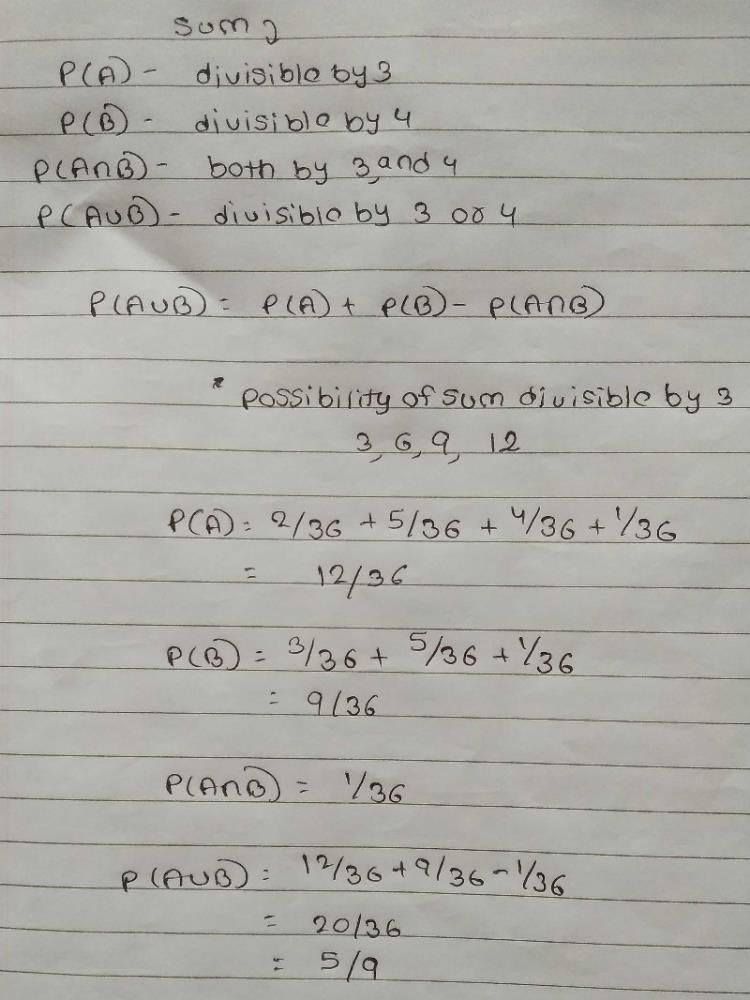 Sum 2
P(A) - divisible by 3
P(B) - divisible by 4
P(A∩B) - both by 3, and 4
P(A∪B) - divisible by 3 or 4
P(A∪B) = P(A) + P(B) - P(A∩B)
* possibility of sum divisible by 3
3, 6, 9, 12
P(A) = 2/36 + 5/36 + 4/36 + 1/36
= 12/36
P(B) = 3/36 + 5/36 + 1/36
= 9/36
P(A∩B) = 1/36
P(A∪B) = 12/36 + 9/36 - 1/36
= 20/36
= 5/9